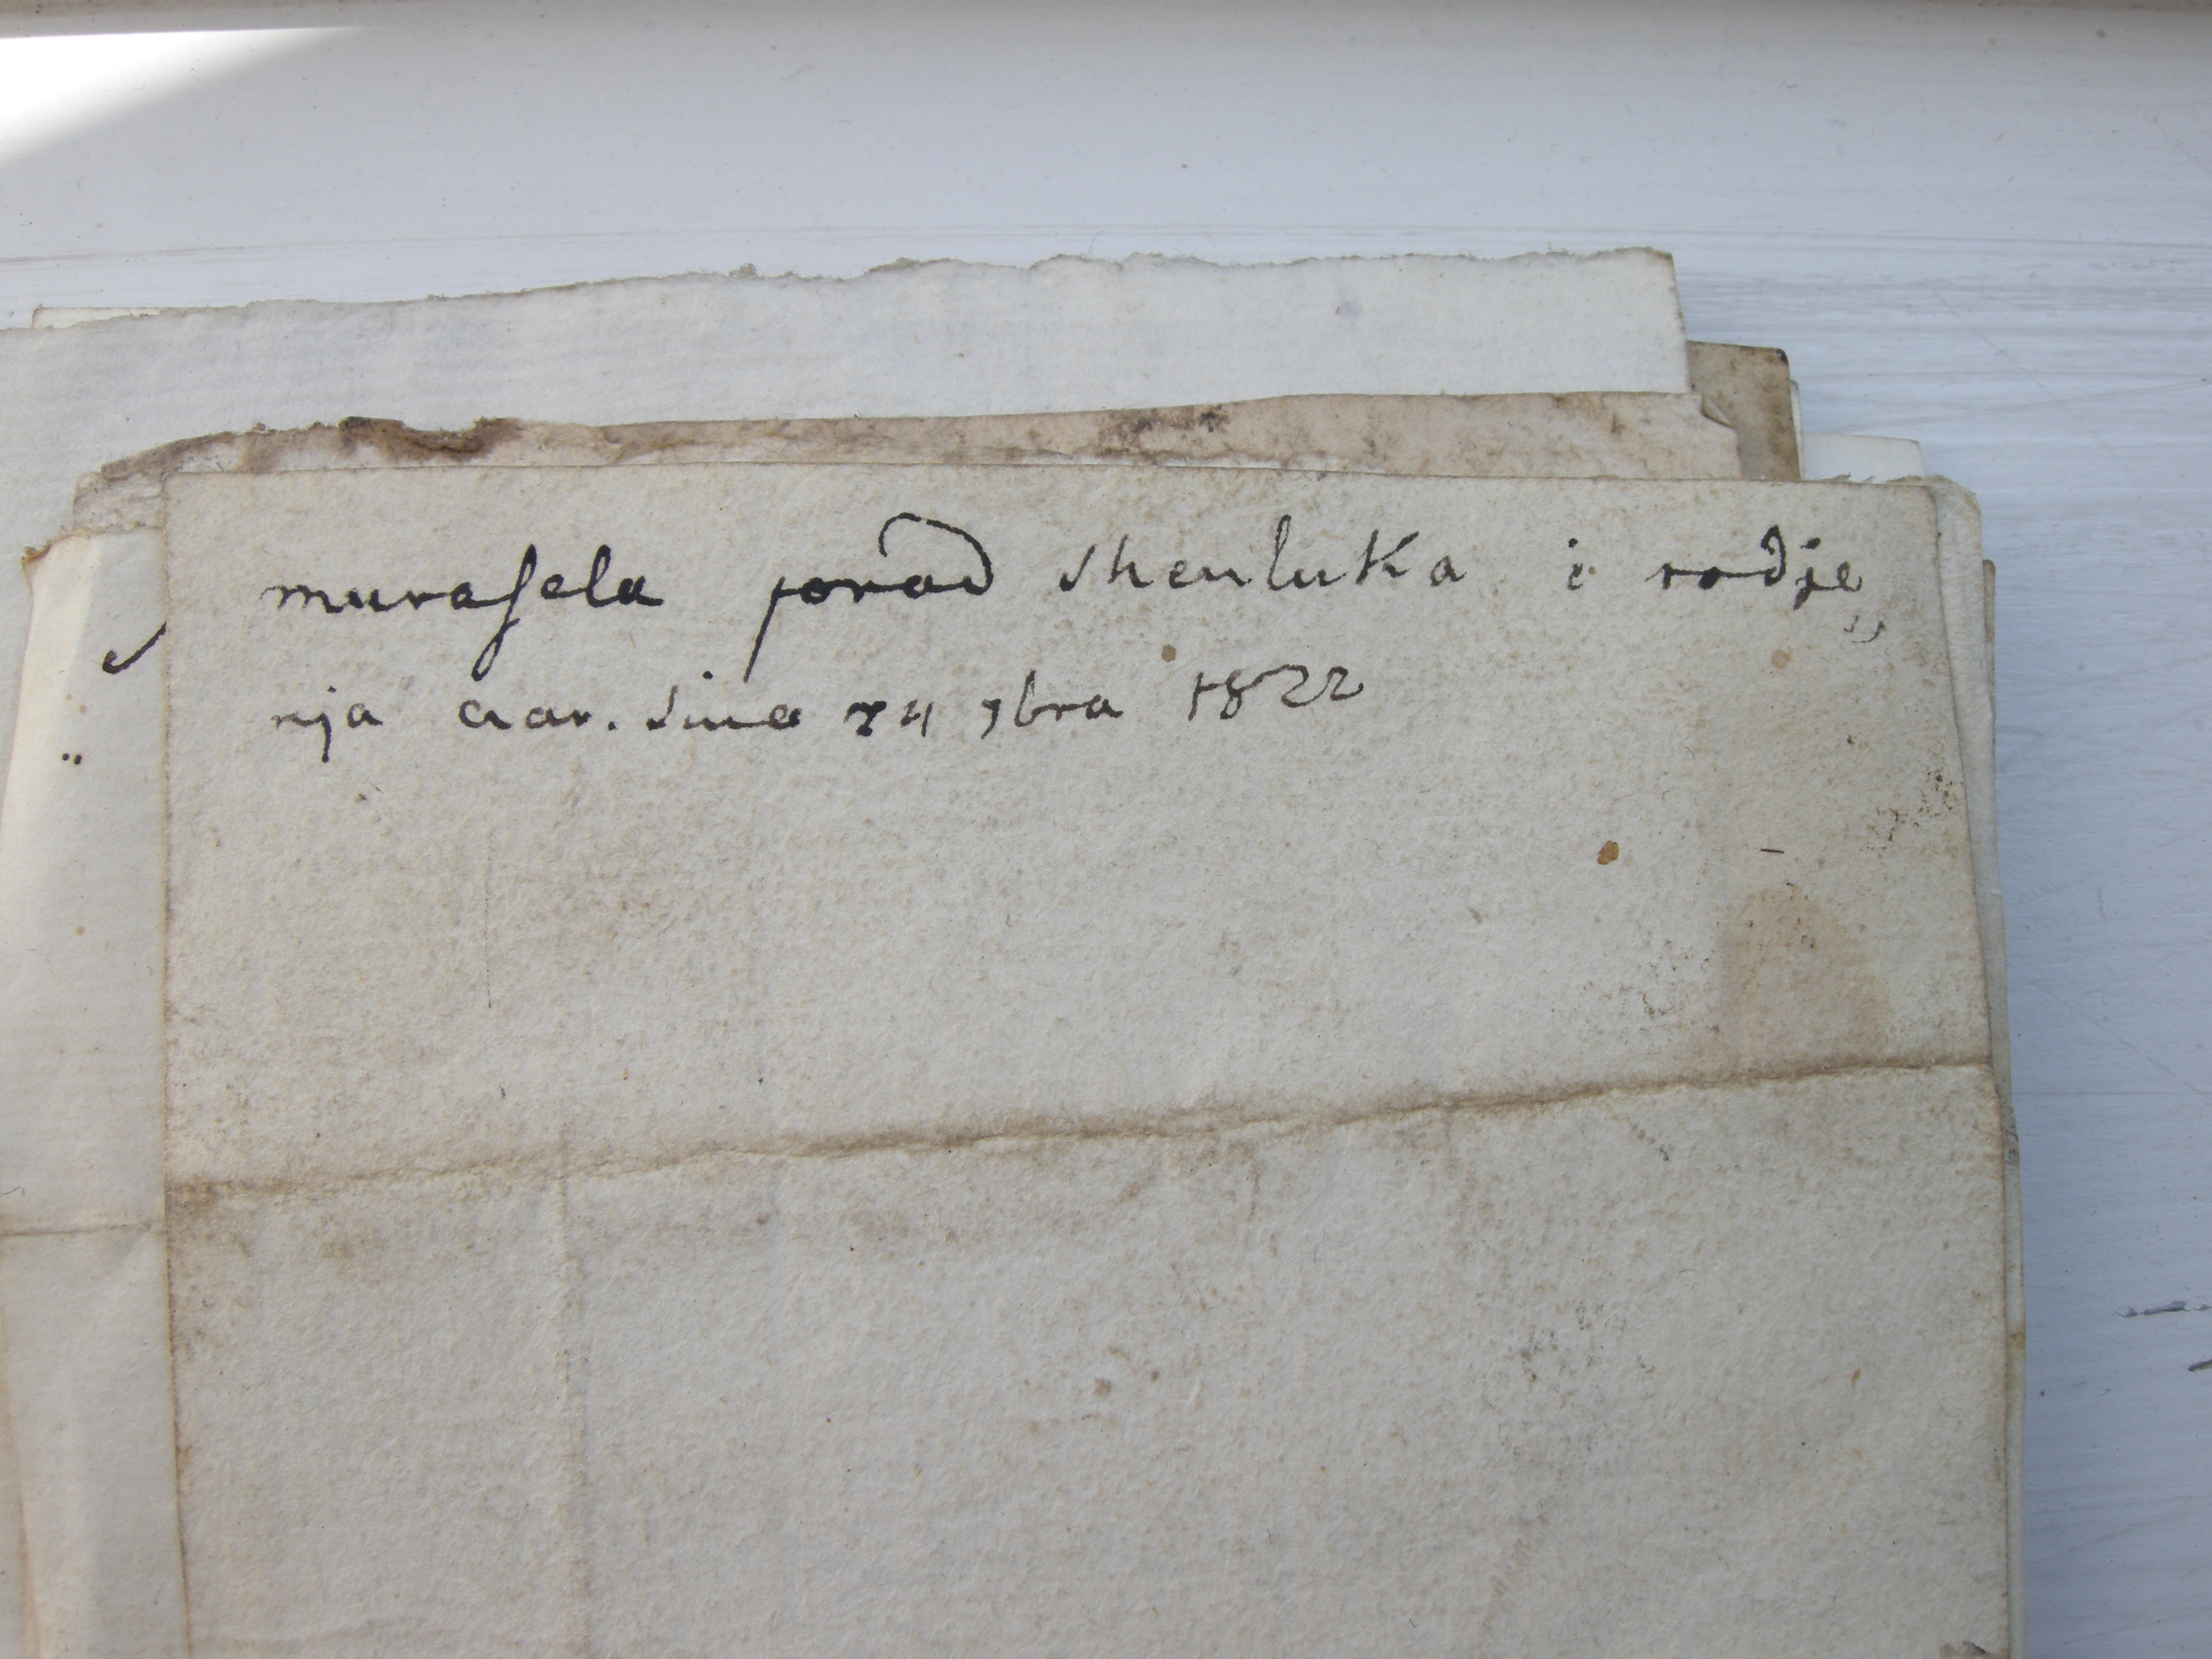 murasela porad shenluka i rodje„
nja car. sina 24 7bra 1822